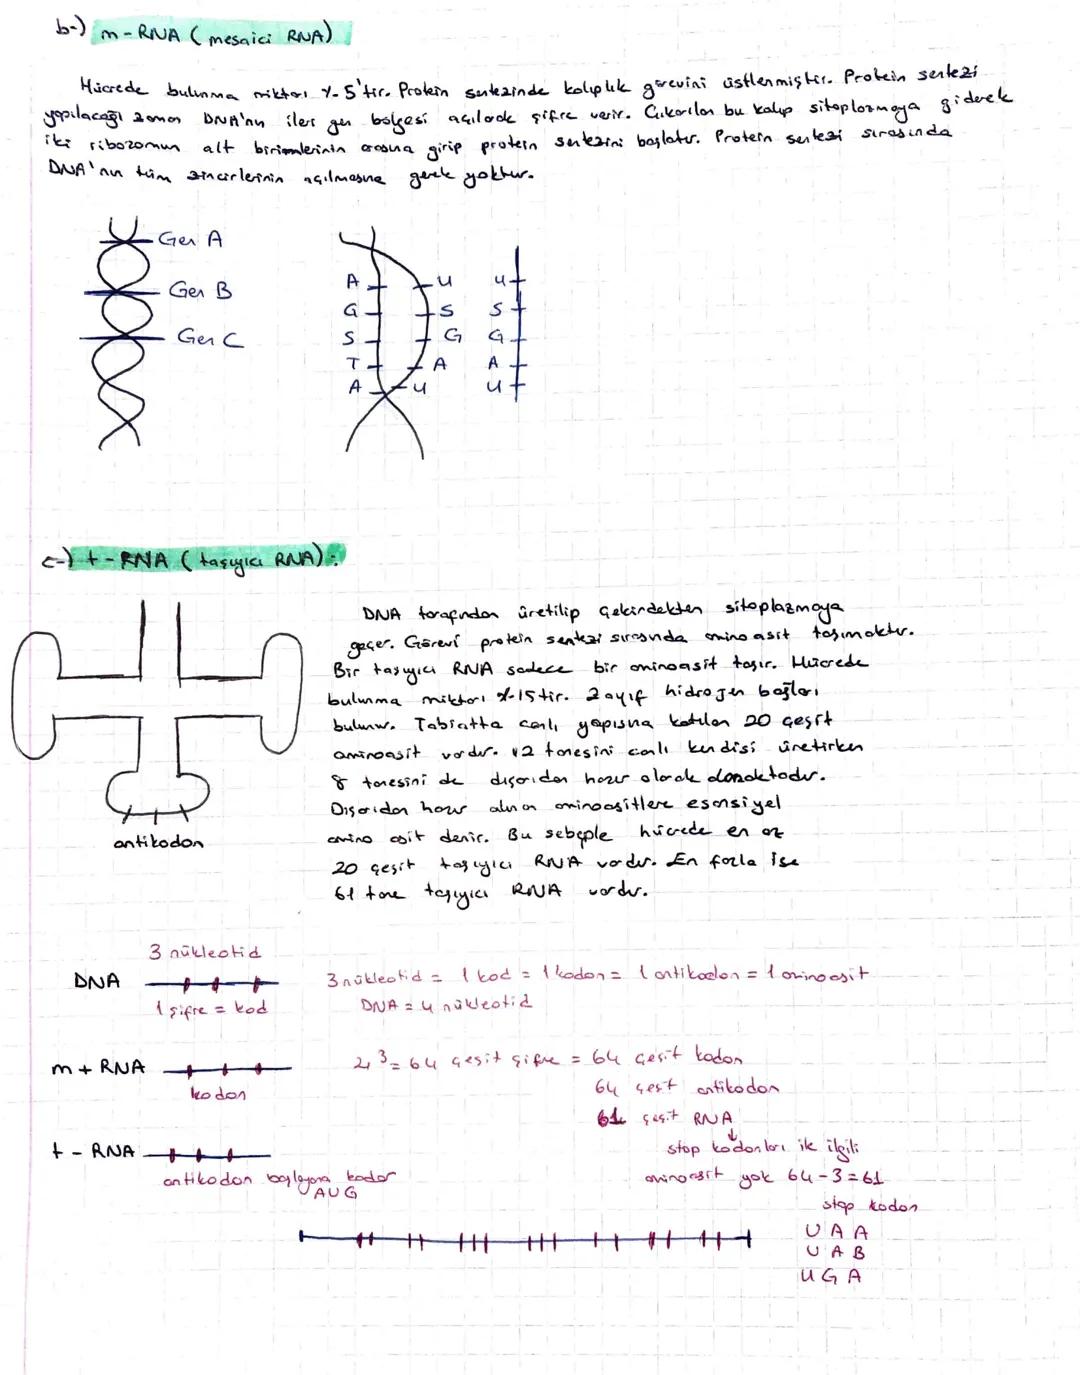 b-) m-RNA (mesajcı RNA)
Hücrede bulunma miktarı %5'tir. Protein sentezinde kalıplık görevini üstlenmiştir. Protein sentezi
yapılacağı zaman DNA'nın ilgili gen bölgesi açılarak şifre verir. Çıkarılan bu kalıp sitoplazmaya giderek
iki ribozomun alt birimlerinin arasına girip protein sentezini başlatır. Protein sentezi sırasında
DNA'nın tüm zincirlerinin açılmasına gerek yoktur.
Gen A
Gen B
Gen C
A U U
G S S
S G G
T A A
A U U
c-) t-RNA (taşıyıcı RNA):
DNA tarafından üretilip çekirdekten sitoplazmaya
geçer. Görevi protein sentezi sırasında amino asit taşımaktır.
Bir taşıyıcı RNA sadece bir aminoasit taşır. Hücrede
bulunma miktarı %15tir. Zayıf hidrojen bağları
bulunur. Tabiatta canlı yapısına katılan 20 çeşit
aminoasit vardır. 12 tanesini canlı kendisi üretirken
8 tanesini de dışarıdan hazır olarak almaktadır.
Dışarıdan hazır alınan aminoasitlere esansiyel
amino asit denir. Bu sebeple hücrede en az
20 çeşit taşıyıcı RNA vardır. En fazla ise
61 tane taşıyıcı RNA vardır.
antikodon
3 nükleotid
DNA
1 şifre = kod
3 nükleotid = 1 kod = 1 kodon = 1 antikodon = 1 aminoasit
DNA = 4 nükleotid
m + RNA
kodon
4³ = 64 çeşit şifre = 64 çeşit kodon
64 çeşit antikodon
61 çeşit RNA
stop kodonları ile ilgili
aminoasit yok 64-3=61
t - RNA
antikodon başlayana kadar
AUG
stop kodon
U A A
U A B
U G A